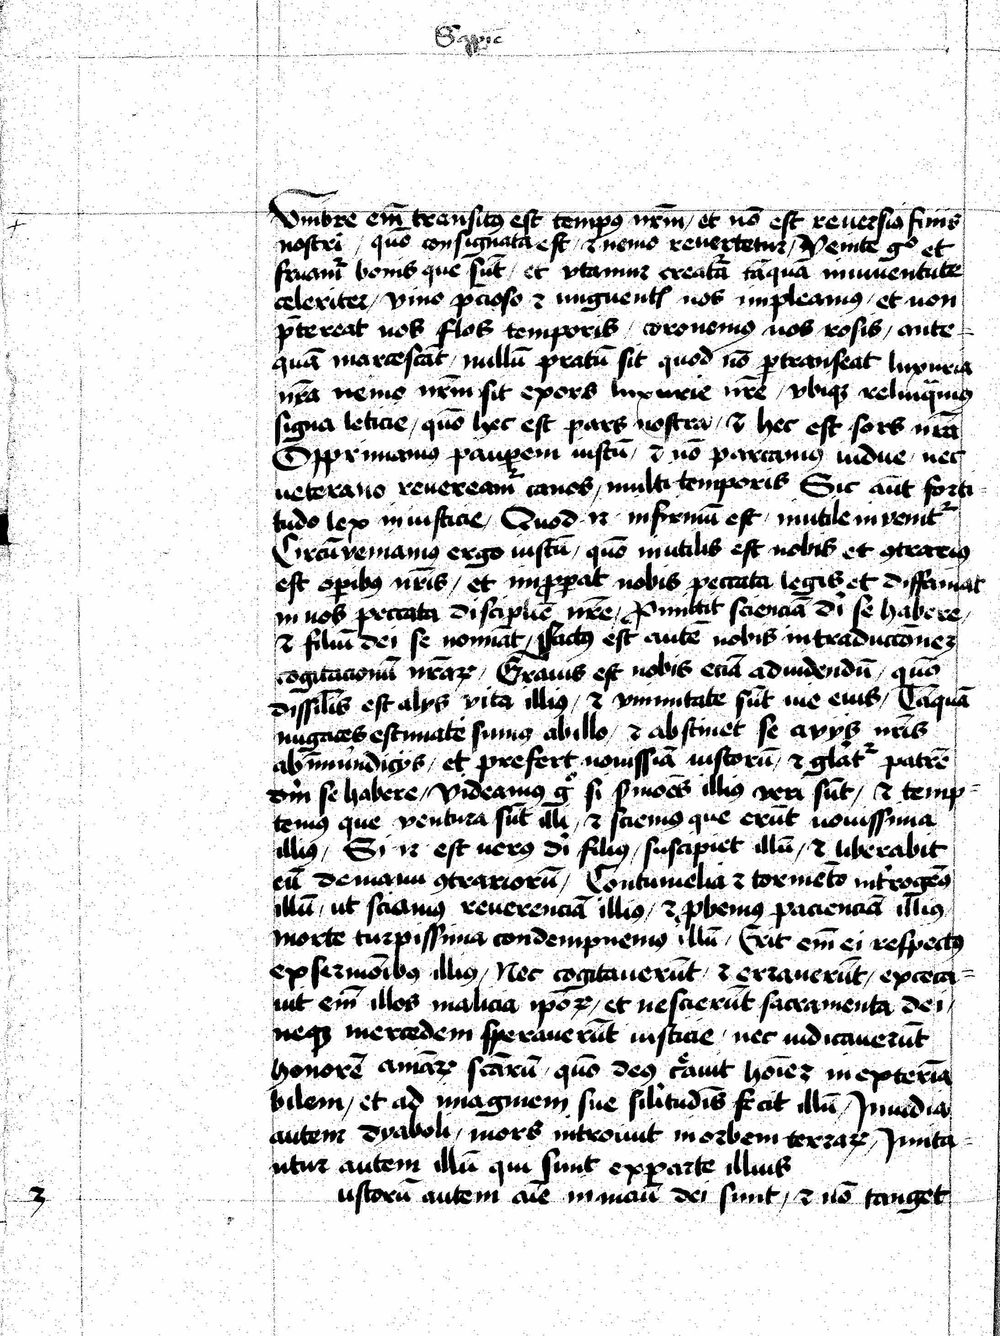 Sapie
Vmbre em̄ transitꝰ est tempꝯ nr̄m / et nō est reuersio finis
nostri / quō consignata est / ⁊ nemo reuertetur / Venite gͦ et
fruamr̄ bonis que sūt / et vtamur creatā tāquā in iuuentute
celeriter / vino p̄cioso ⁊ unguentꝭ nos impleamꝰ / et non
p̄tereat nos flos temporis / coronemꝰ nos rosis / ante=
quā marcescāt / nullū pratū sit quod nō ꝑtranseat luxuria
nr̄a nemo nr̄m sit exors luxurie nr̄e / vbiqꝫ relinq̄mꝰ
signa leticie / quō hec est pars nostra / ⁊ hec est sors nr̄a
Opprimamꝰ pauꝑem iustū / ⁊ nō parcamꝰ vidue / nec
veterano reuereamr̄ canos / multi temporis Sic aūt forti
tudo lex iniusticie / Quod n̄ infirmū est / inutile inuenitr̄
Circūueniamꝰ ergo iustū / quō inutilis est nobis et ꝯtrariꝰ
est oꝑibꝰ nr̄is / et imꝓꝑat nobis peccata legis et diffamat
in nos peccata discipline nr̄e / Ꝓmittit scienciā dī se habere /
⁊ filiū dei se nomīat / factꝰ est autē nobis in traductōnez
cogitacionū nr̄aꝝ / Grauis est nobis eciā ad videndū / quō
dissil̄is est alijs vita illiꝰ / ⁊ ymmutate sūt vie eius / Tāquā
nugaces estimati sumꝰ ab illo / ⁊ abstinet se a vijs nr̄is
ab īmundicijs / et prefert nouissīa iustorū / ⁊ gl̄atr̄ patrē
dm̄ se habere / Videamꝰ gͦ si s̄moēs illiꝰ veri sūt / ⁊ temp=
temꝰ que ventura sūt illi / ⁊ sciemꝰ que erūt nouissima
illiꝰ / Si n̄ est verꝰ dī filiꝰ / suscipiet illū / ⁊ liberabit
eū de manu ꝯtrariorū / Contumelia ⁊ tormēto int̄rogeꝰ
illū / ut sciamꝰ reuerenciā illiꝰ / ⁊ ꝓbemꝰ pacienciā illiꝰ
morte turpissima condempnemꝰ illū / Erit em̄ ei respectꝰ
ex sermōibꝰ illiꝰ / Nec cogitauerūt / ⁊ errauerūt / exceca=
uit em̄ illos malicia ipōꝝ / et nescierūt sacramenta dei /
neqꝫ mercedem sperauerūt iusticie / nec iudicauerūt
honorē aīmaꝝ sctārū / quō deꝰ c̄auit hoīez inextermīa
bilem / et ad imaginem sue sil̄itudīs fecit illū / Inuidia
autem dyaboli / mors introiuit in orbem terraꝝ / Imita=
utur autem illū qui sunt ex parte illius
3 ustorū autem aīe in manū dei sunt / ⁊ nō tanget